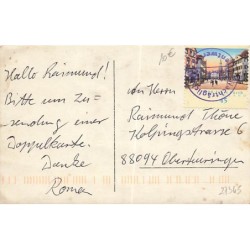 Hallo Raimund!
Bitte um Zu-
sendung einer
Doppelkarte.
Danke
Roman
10€
den Herrn
Raimund Thöne
Kolpingstrasse 6
88094 Oberteuringen